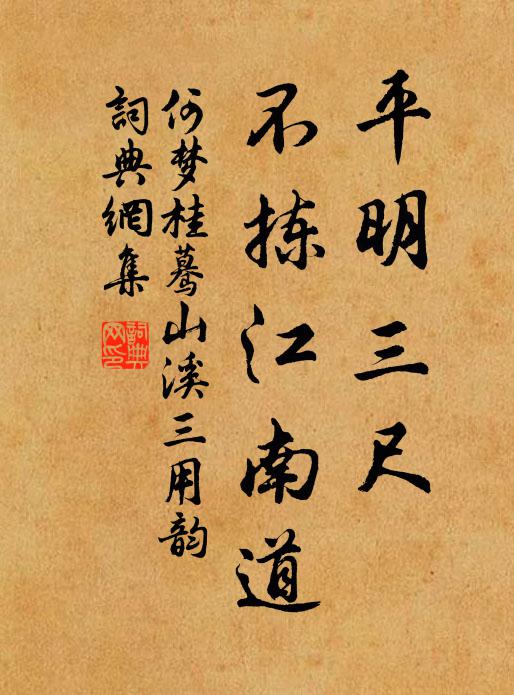 平明三尺
不拣江南道
何梦桂蓦山溪三用韵
詞典網集
詞典网印